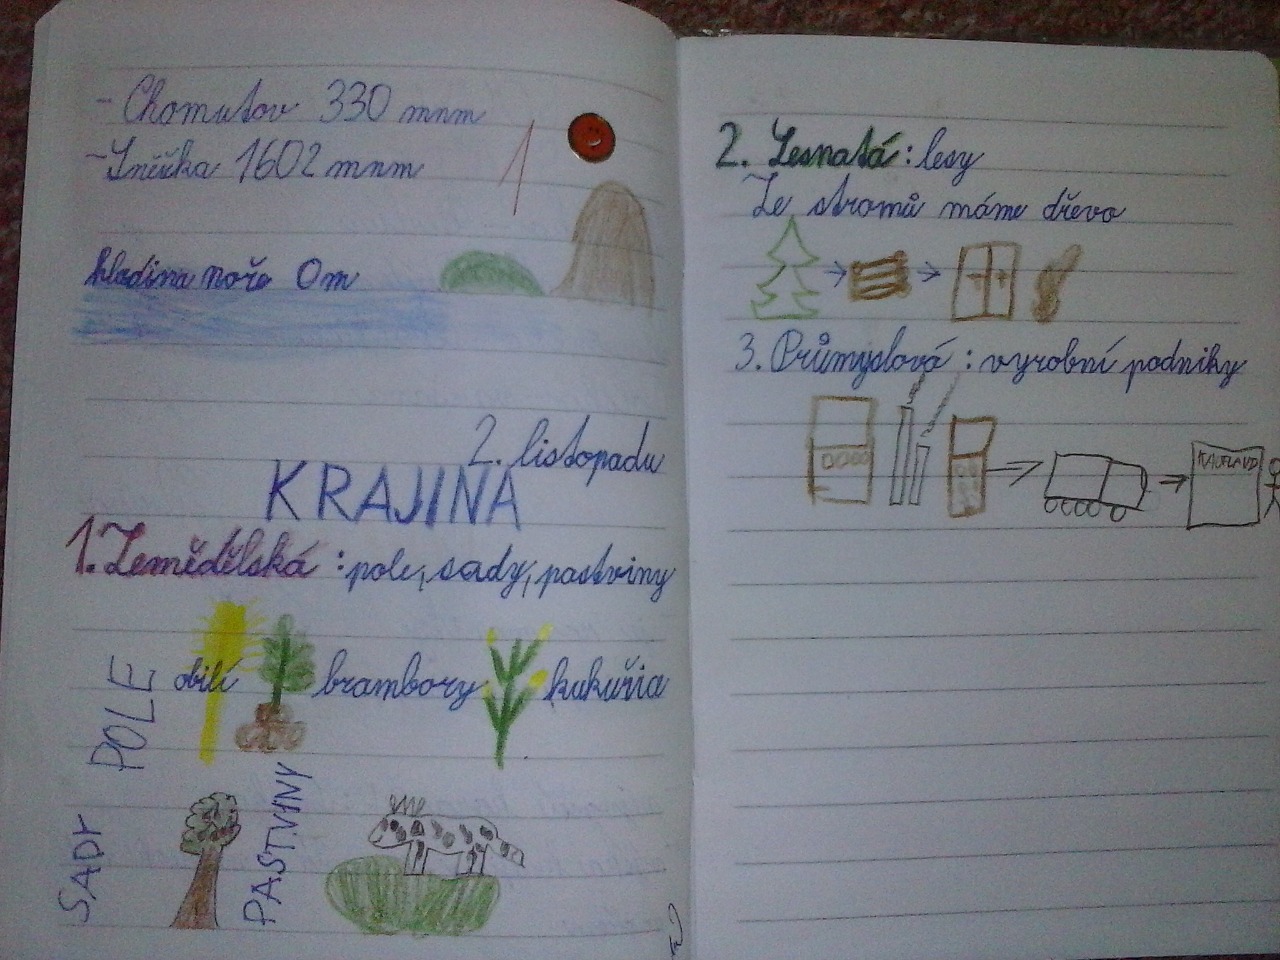 - Chomutov 330 mnm
- Sněžka 1602 mnm
1
hladina moře 0 m
2. listopadu
KRAJINA
1. Zemědělská : pole, sady, pastviny
POLE
obilí brambory kukuřia
SADY
PASTVINY
2. Lesnatá : lesy
Ze stromů máme dřevo
3. Průmyslová : vyrobní podniky
KAUFLAND